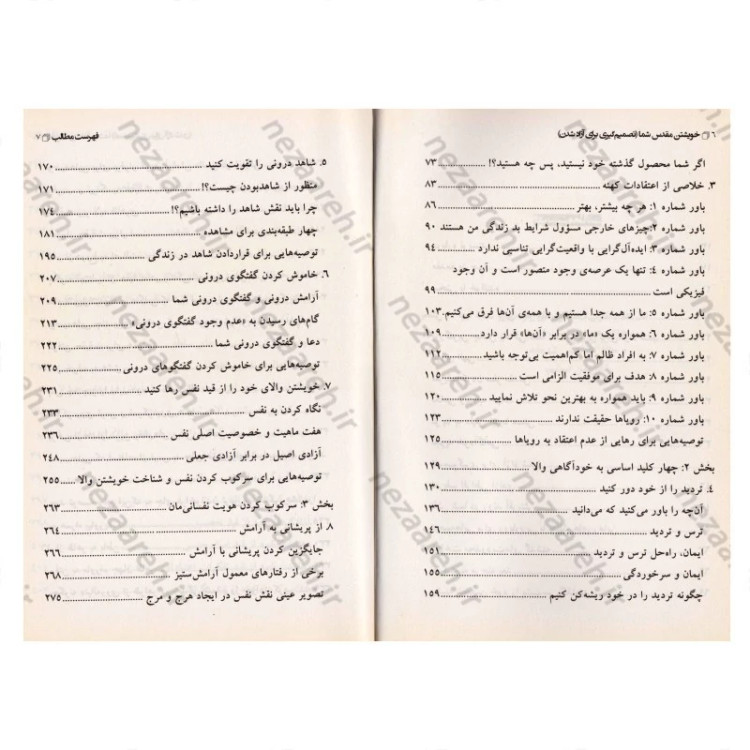 ۶ خویشتن مقدس شما (تصمیم‌گیری برای آزاد شدن)
اگر شما محصول گذشته خود نیستید، پس چه هستید؟! ۷۳
۳. خلاصی از اعتقادات کهنه ۸۳
باور شماره ۱: هر چه بیشتر، بهتر ۸۶
باور شماره ۲: چیزهای خارجی مسؤول شرایط بد زندگی من هستند ۹۰
باور شماره ۳: ایده‌آل‌گرایی با واقعیت‌گرایی تناسبی ندارد ۹۴
باور شماره ۴: تنها یک عرصه‌ی وجود متصور است و آن وجود
فیزیکی است ۹۹
باور شماره ۵: ما از همه جدا هستیم و با همه‌ی آن‌ها فرق می‌کنیم. ۱۰۳
باور شماره ۶: همواره یک «ما» در برابر «آن‌ها» قرار دارد ۱۰۹
باور شماره ۷: به افراد ظالم اما کم‌اهمیت بی‌توجه باشید ۱۱۲
باور شماره ۸: هدف برای موفقیت الزامی است ۱۱۵
باور شماره ۹: باید همواره به بهترین نحو تلاش نمایید ۱۲۰
باور شماره ۱۰: رویاها حقیقت ندارند ۱۲۳
توصیه‌هایی برای رهایی از عدم اعتقاد به رویاها ۱۲۵
بخش ۲: چهار کلید اساسی به خودآگاهی والا ۱۲۹
۴. تردید را از خود دور کنید ۱۳۰
آن‌چه را باور می‌کنید که می‌دانید ۱۳۶
ترس و تردید ۱۴۶
ایمان، راه‌حل ترس و تردید ۱۵۱
ایمان و سرخوردگی ۱۵۵
چگونه تردید را در خود ریشه‌کن کنیم ۱۵۹
فهرست مطالب ۷
۵. شاهد درونی را تقویت کنید ۱۷۰
منظور از شاهدبودن چیست؟! ۱۷۱
چرا باید نقش شاهد را داشته باشیم؟! ۱۷۴
چهار طبقه‌بندی برای مشاهده ۱۸۱
توصیه‌هایی برای قراردادن شاهد در زندگی ۱۹۵
۶. خاموش کردن گفتگوی درونی ۲۰۷
آرامش درونی و گفتگوی درونی شما ۲۰۹
گام‌های رسیدن به «عدم وجود گفتگوی درونی» ۲۱۳
دعا و گفتگوی درونی شما ۲۲۲
توصیه‌هایی برای خاموش کردن گفتگوهای درونی ۲۲۵
۷. خویشتن والای خود را از قید نفس رها کنید ۲۳۱
نگاه کردن به نفس ۲۳۳
هفت ماهیت و خصوصیت اصلی نفس ۲۳۶
آزادی اصیل در برابر آزادی جعلی ۲۴۸
توصیه‌هایی برای سرکوب کردن نفس و شناخت خویشتن والا ۲۵۵
بخش ۳: سرکوب کردن هویت نفسانی‌مان ۲۶۳
۸. از پریشانی به آرامش ۲۶۴
جایگزین کردن پریشانی با آرامش ۲۶۶
برخی از رفتارهای معمول آرامش‌ستیز ۲۶۸
تصویر عینی نقش نفس در ایجاد هرج و مرج ۲۷۵
nezaareh.ir